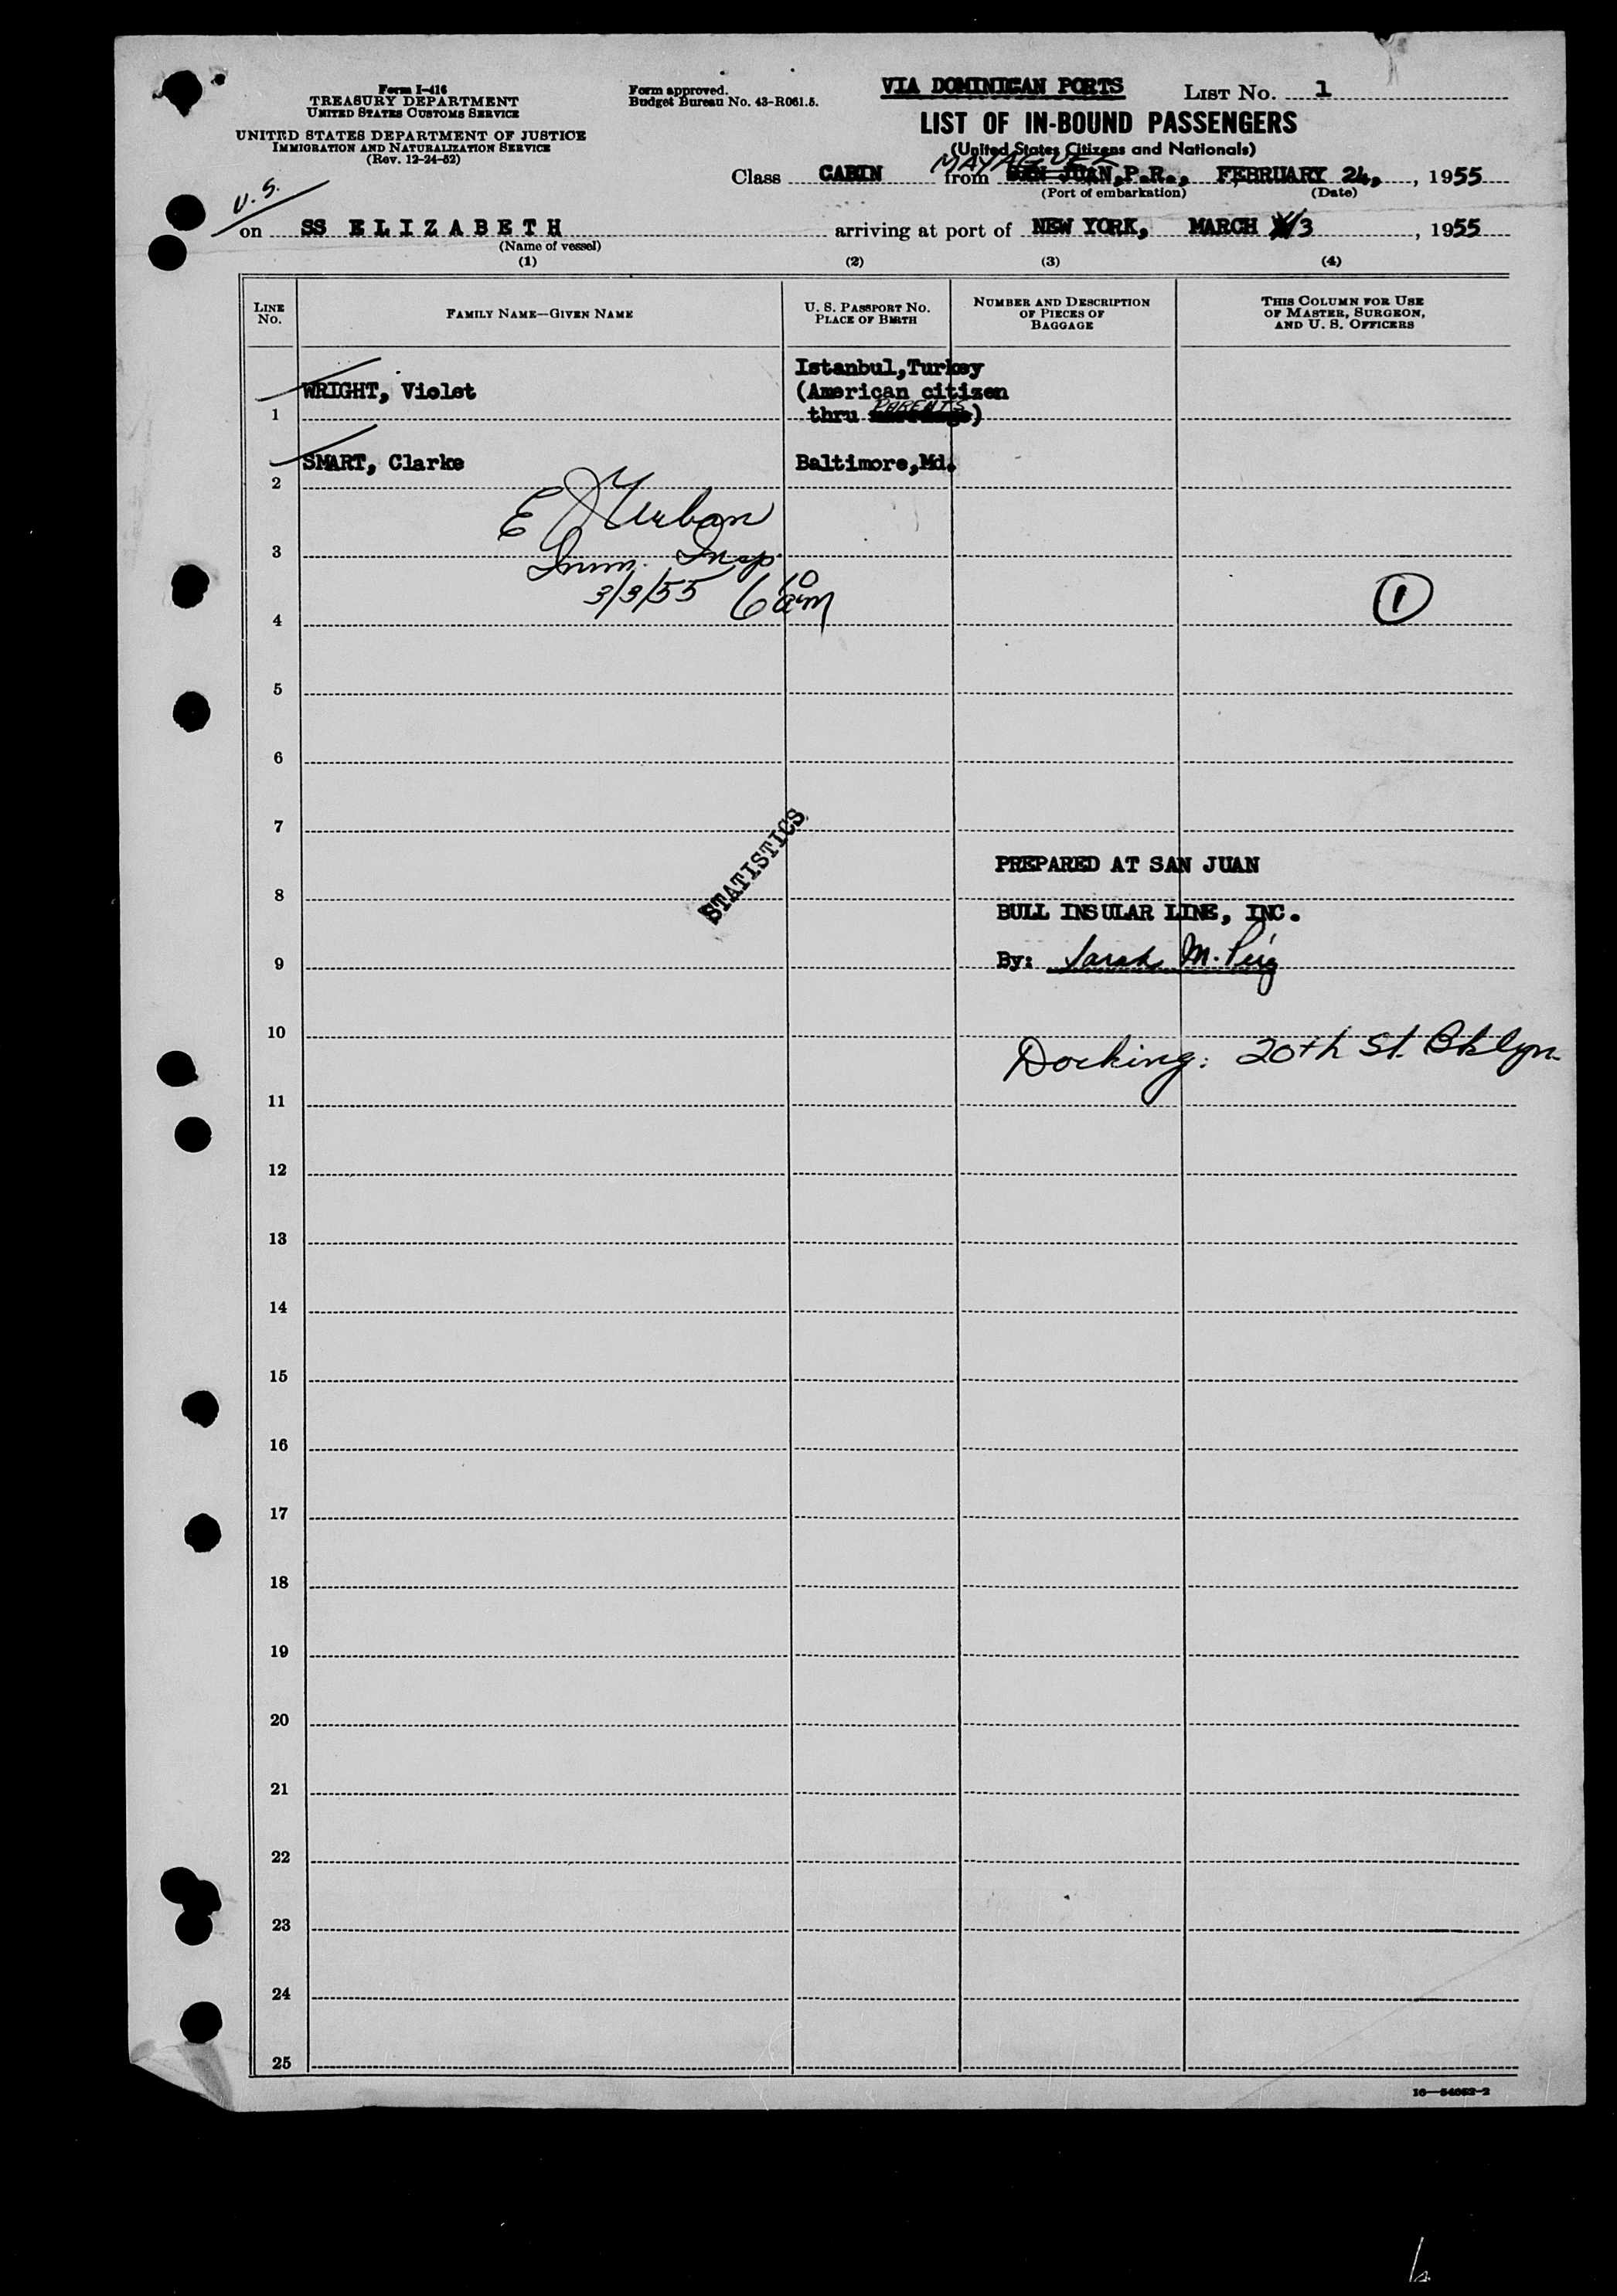 Form I-416
TREASURY DEPARTMENT
UNITED STATES CUSTOMS SERVICE
UNITED STATES DEPARTMENT OF JUSTICE
IMMIGRATION AND NATURALIZATION SERVICE
(Rev. 12-24-52)
Form approved.
Budget Bureau No. 43-R061.5.
VIA DOMINICAN PORTS
LIST No. 1
LIST OF IN-BOUND PASSENGERS
(United States Citizens and Nationals)
MAYAGUEZ
Class CABIN from SAN JUAN, P.R., FEBRUARY 24, , 1955
(Port of embarkation) (Date)
U.S.
on SS ELIZABETH arriving at port of NEW YORK, MARCH 3 , 1955
(Name of vessel)
(1) (2) (3) (4)
LINE No.
FAMILY NAME—GIVEN NAME
U. S. PASSPORT NO.
PLACE OF BIRTH
NUMBER AND DESCRIPTION
OF PIECES OF
BAGGAGE
THIS COLUMN FOR USE
OF MASTER, SURGEON,
AND U. S. OFFICERS
Istanbul,Turkey
WRIGHT, Violet (American citizen
1 thru PARENTS)
SMART, Clarke Baltimore,Md.
2
E Urban
3 Imm. Insp
3/3/55 6 10 am
1
4
5
6
7
STATISTICS
PREPARED AT SAN JUAN
8
BULL INSULAR LINE, INC.
By: Sarah M. Puig
9
10
Docking: 20th St. Bklyn.
11
12
13
14
15
16
17
18
19
20
21
22
23
24
25
16—54052-2